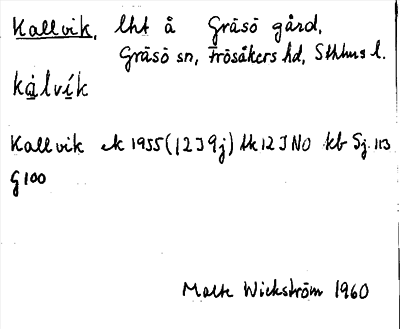 Kallvik, lht å Gräsö gård,
Gräsö sn, Frösåkers hd, Sthlms l.
kalvik
Kallvik ek 1955 (12J9j) tk 12J NO kb Sj. 113
G 100
Malte Wickström 1960